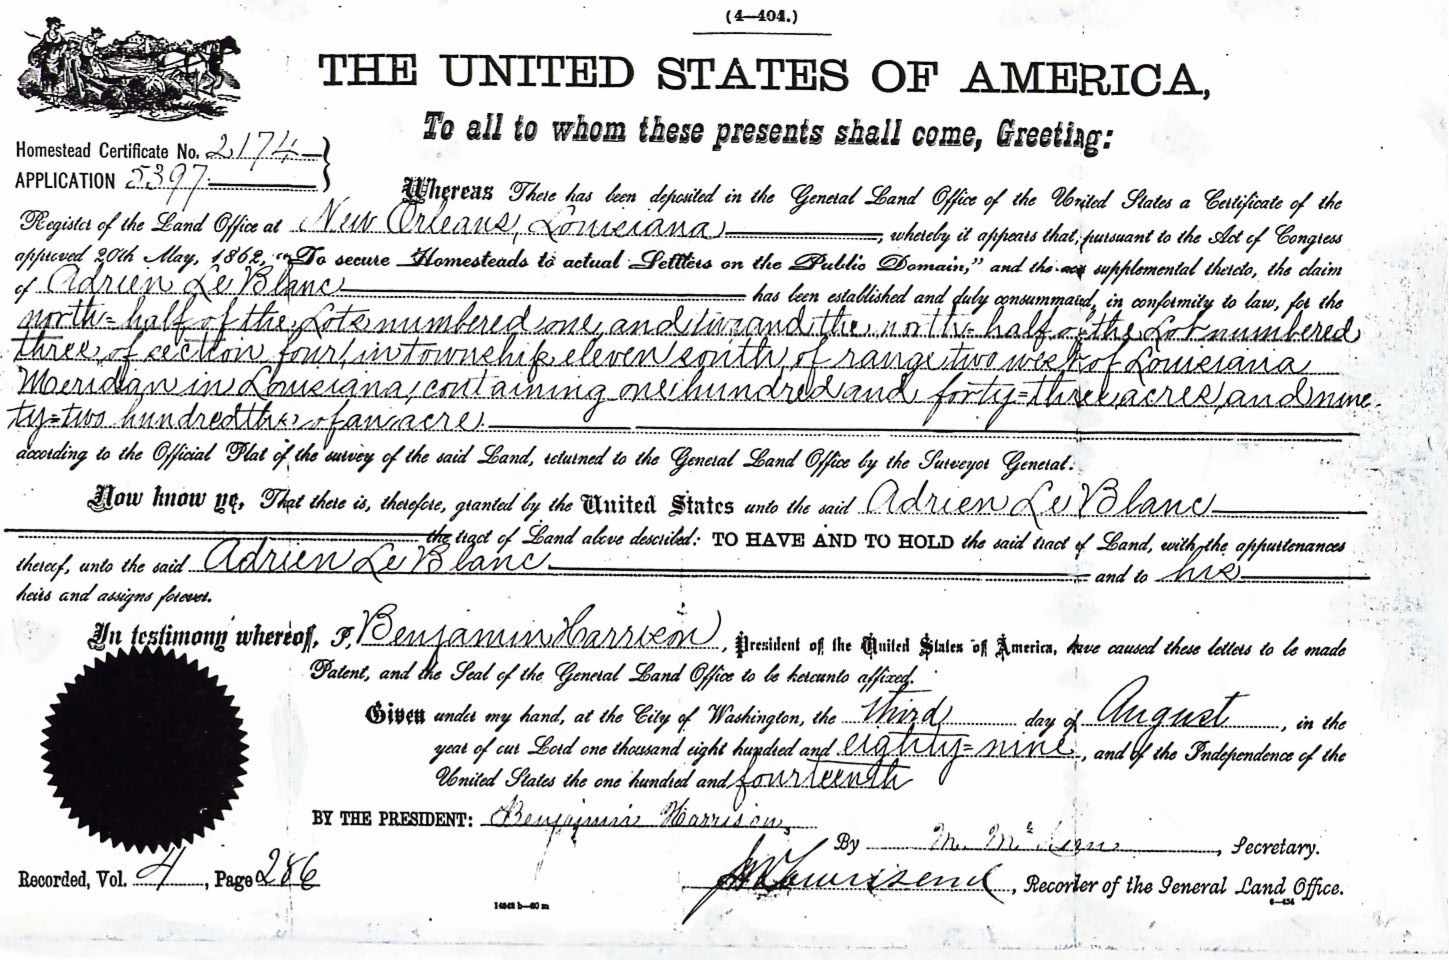 (4—404.)
THE UNITED STATES OF AMERICA,
To all to whom these presents shall come, Greeting:
Homestead Certificate No. 2174
APPLICATION 5397
Whereas There has been deposited in the General Land Office of the United States a Certificate of the
Register of the Land Office at New Orleans, Louisiana, whereby it appears that, pursuant to the Act of Congress
approved 20th May, 1862, "To secure Homesteads to actual Settlers on the Public Domain," and the acts supplemental thereto, the claim
of Adrien Le Blanc has been established and duly consummated, in conformity to law, for the
north=half of the Lots numbered one, and two and the north=half of the Lot numbered
three, of section four, in township eleven south, of range two west of Louisiana
Meridian in Louisiana, containing one hundred and forty=three acres, and nine
ty=two hundredths of an acre.
according to the Official Plat of the survey of the said Land, returned to the General Land Office by the Surveyor General:
Now know ye, That there is, therefore, granted by the United States unto the said Adrien Le Blanc
the tract of Land above described: TO HAVE AND TO HOLD the said tract of Land, with the appurtenances
thereof, unto the said Adrien Le Blanc and to his
heirs and assigns forever.
In testimony whereof, I, Benjamin Harrison, President of the United States of America, have caused these letters to be made
Patent, and the Seal of the General Land Office to be hereunto affixed.
Given under my hand, at the City of Washington, the third day of August, in the
year of our Lord one thousand eight hundred and eighty=nine, and of the Independence of the
United States the one hundred and fourteenth
BY THE PRESIDENT: Benjamin Harrison,
By M. McKean, Secretary.
Recorded, Vol. 4, Page 286
Townsend, Recorder of the General Land Office.